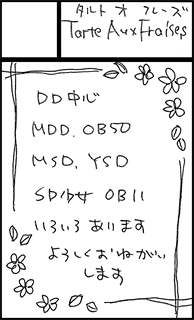 タルト オ フレーズ
Tarte Aux Fraises
DD中心
MDD. OB50
MSD. YSD
SD少女 OB11
いろいろあります
よろしくおねがい
します